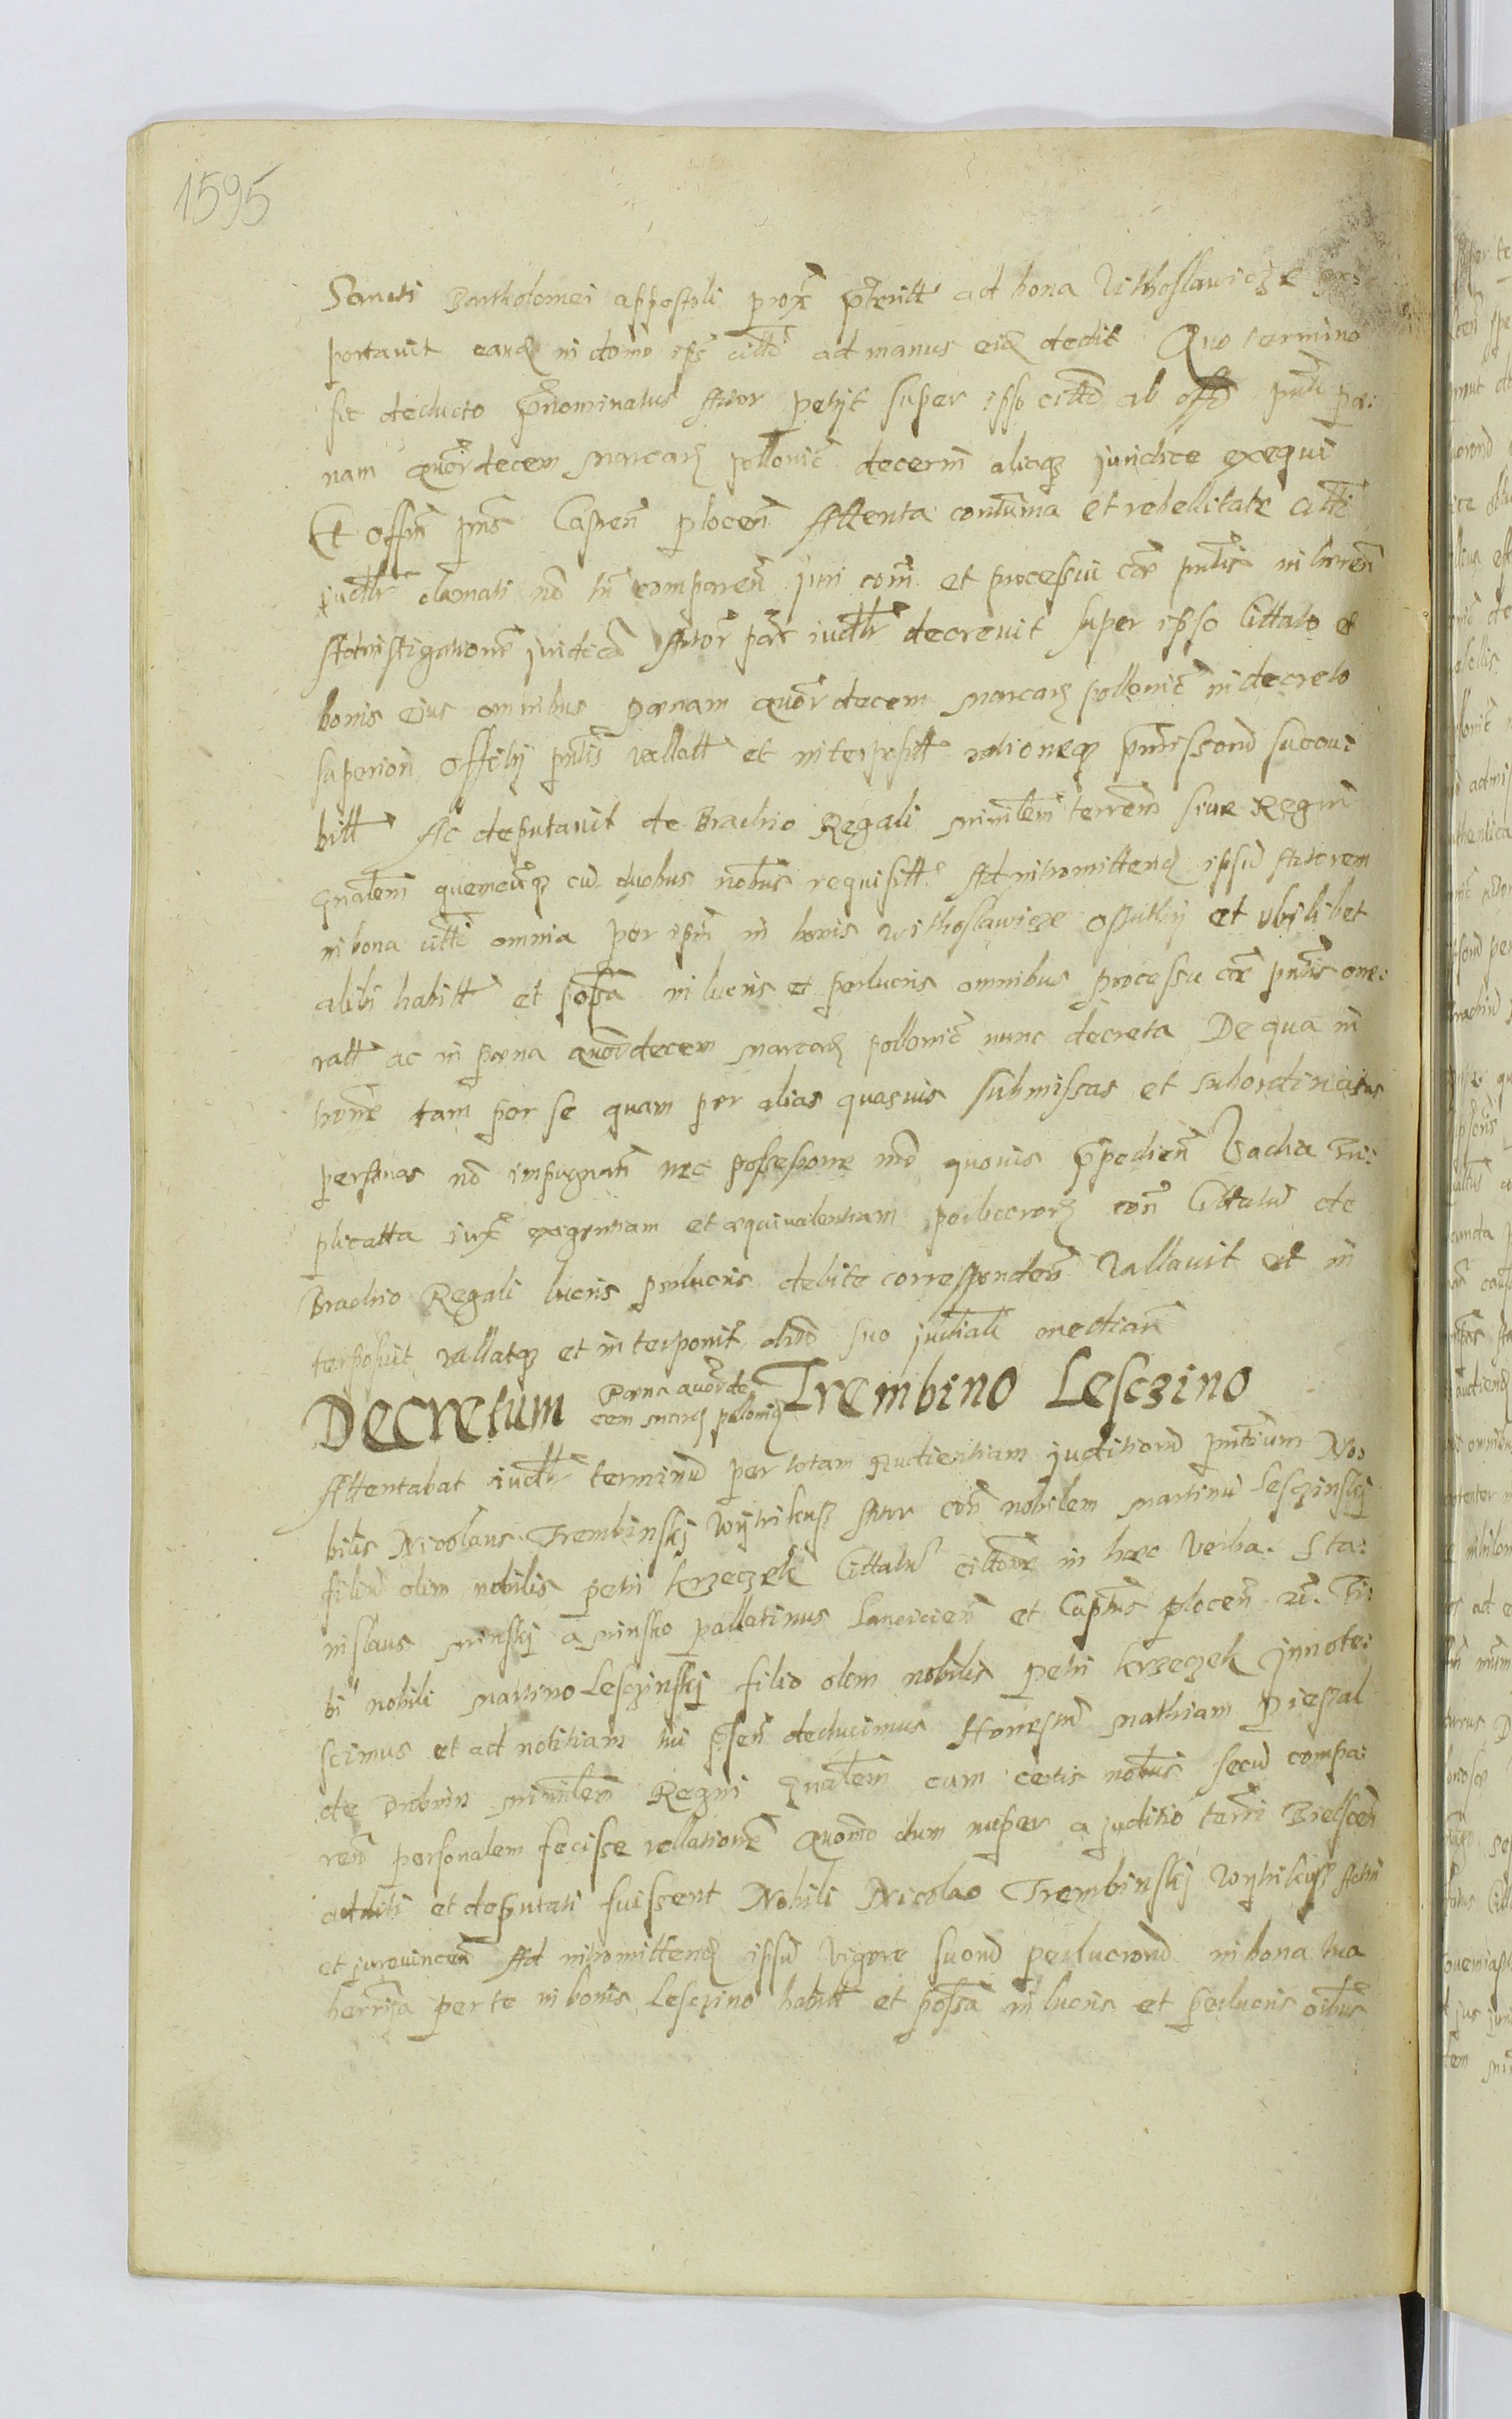 1595
Sancti Bartholomei appostoli prox̄ p̄teritt ad bona Vithoslawicze
portavit eandꝫ in domo ips̄ citti ad manus eiꝫ dedit Quo termino
sic deducto p̄nominatus Actor petijt super ipso citto ab offo pn̄ti pœ:
nam quor̄decem marcarꝫ pollonic̄ decerni aliaqꝫ juridice exequi
Et offm̄ pn̄s Castren̄ plocen̄ Attenta contuma et rebellitate citti
judlr̄ clamati nō tn̄ comparen̄ juri com̄ et processui cāe pn̄tis inhæren̄
Ad instigationē juridicā Actor̄ part iudlr̄ decrevit super ipso Cittato et
bonis ejus omnibus pœnam quor̄decem marcarꝫ pollonic̄ in decreto
superiori Offitij pn̄tis vallatt et interposit rationeqꝫ p̄missorū succu:
bitt Ac deputavit de Brachio Regali ministlem̄ terrem̄ sive Regni
gn̄alem̄ quemcūqꝫ cū duobus nobus requisitt Ad intromittendꝫ ipsū Actorem
in bona citti omnia per ipm̄ in bonis withoslawicze et ubilibet
alibi habitt et possa in lucris et perlucris omnibus processu cāe pn̄tis one:
ratt ac in pœna quordecem marcarꝫ pollonic̄ nunc decreta De qua in
tam per se quam per alias quasvis submissas et subordinatas
personas nō impugnan̄ nec possessione mō quovis p̄pedien̄ Vadia Tri:
plicatta iuxᵃ exigentiam et æquivalentiam perlucrorꝫ con̄ Cittatū de
Brachio Regali lucris perlucris debite corresponden̄ Vallavit et in
terposuit vallatqꝫ et interponit suo judiciali median̄
Decretum Pœna quor̄de
cem marcꝫ poloniꝫ Trembino Lesczino
Attentabat iudlr̄ terminū per totam Audientiam juditiorū pn̄tium No:
bilis Nicolaus Trembinskj Wytrikusz Actor con̄ nobilem martinū Lesczinskj
filiū olim nobilis petri krzeczek Cittatū cittone in hæc verba. Sta:
nislaus minskj a minsko pallatinus Lancicien̄ et Captneus plocen̄ Ti:
bi nobili martino Lesczinskj filio olim nobilis petri krzeczek jnnote:
scimus et ad notitiam tui p̄sen̄ deducimus Honestū mathiam pieszal
de ministlem̄ Regni gn̄alem̄ cum certis nobus secū compa:
ren̄ personalem fecisse rellationē Quomō dum nuper a juditio terri Bielscen̄
additi et deputati fuissent Nobili Nicolao Trembinskj Wytrikusz Actori
et jurevincen̄ Ad intromittendꝫ ipsū vigore suorū perlucrorū in bona tua
per te in bonis Lesczino habitt et possa in lucris et perlucris oibus